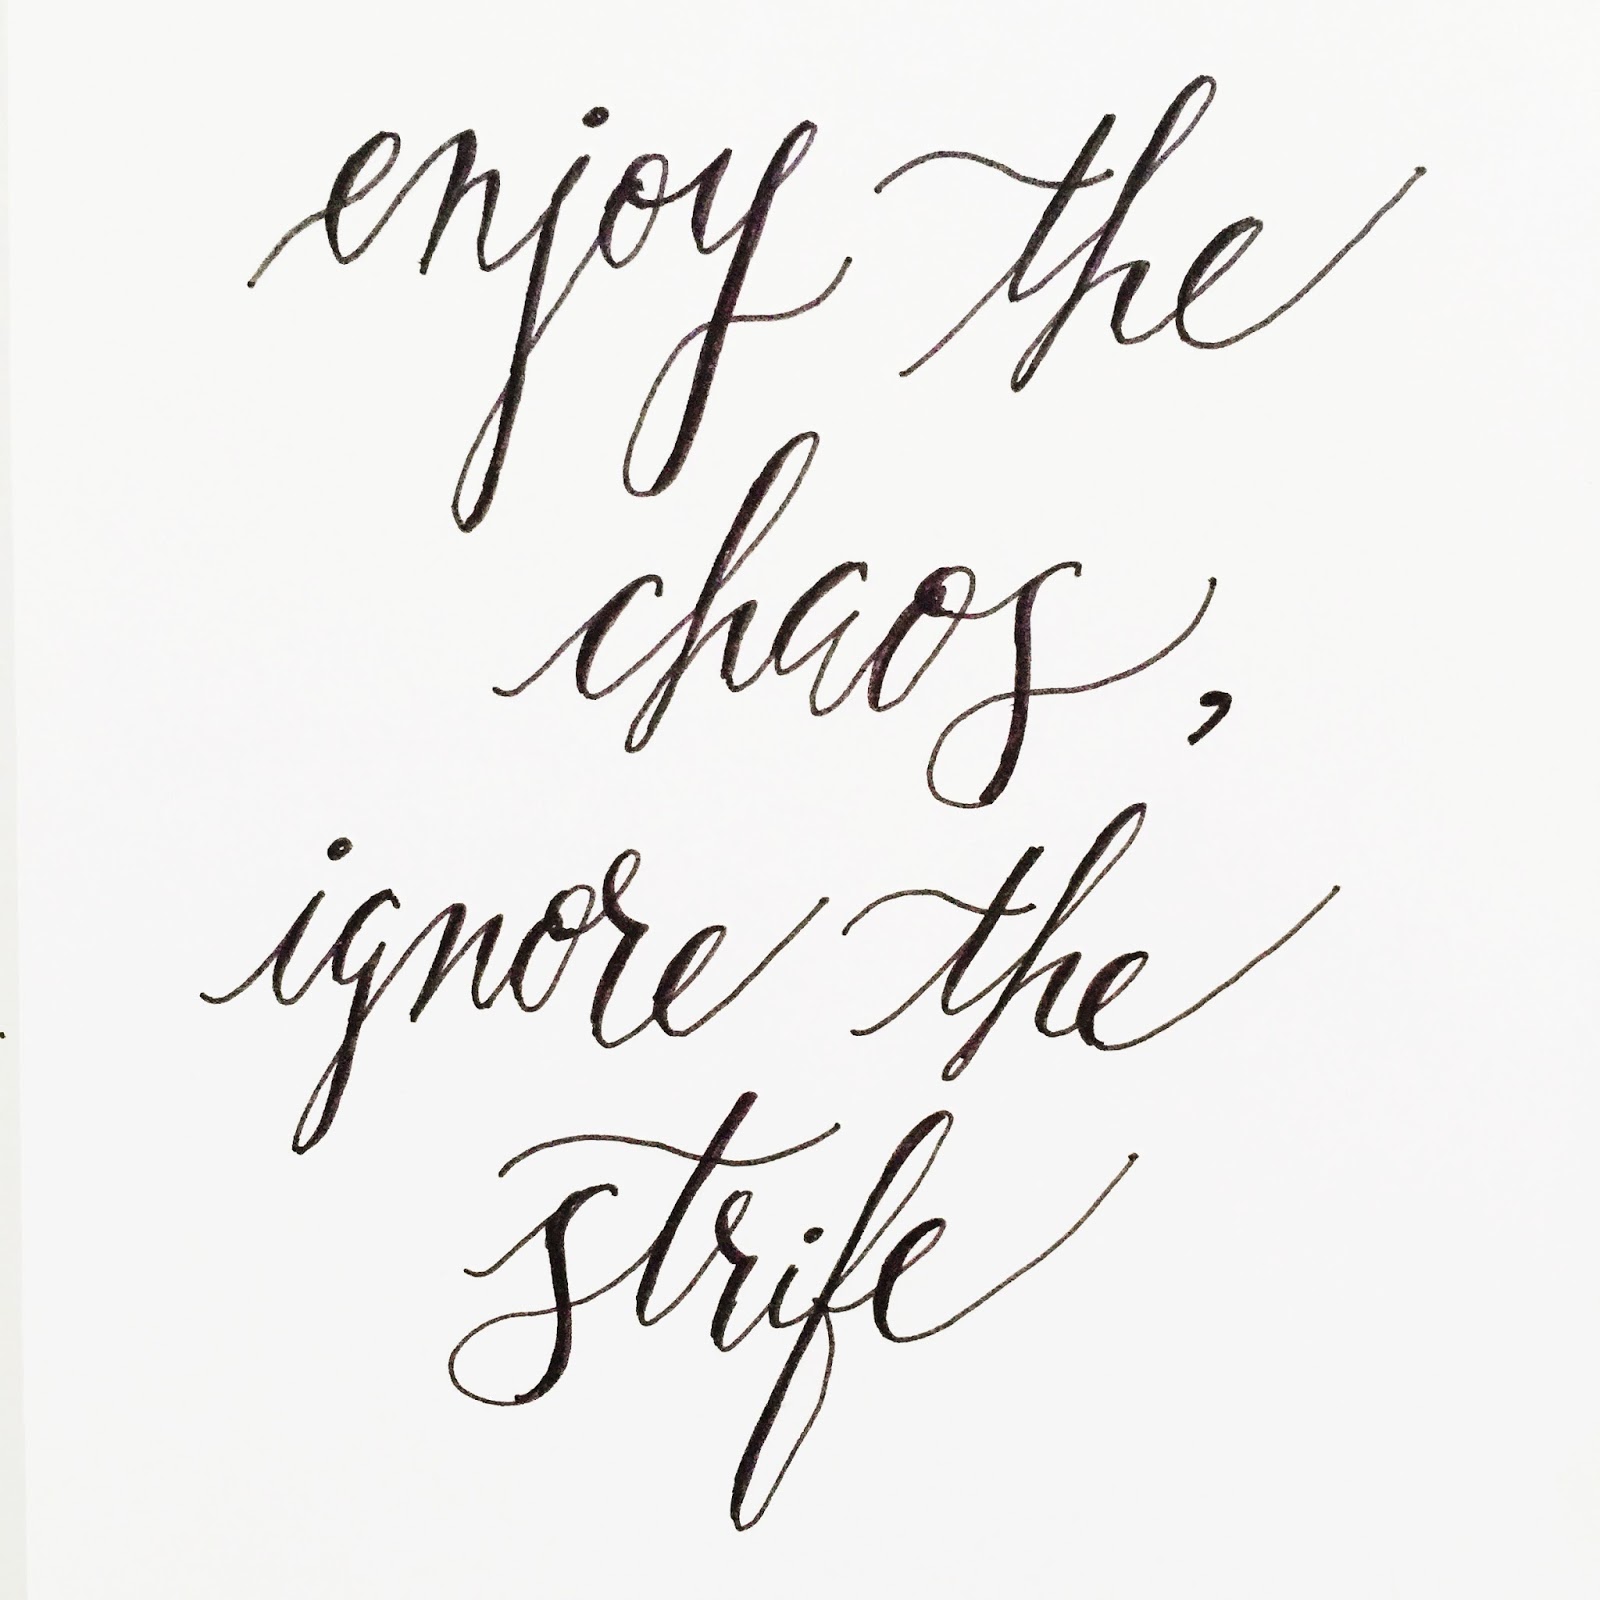 enjoy the
chaos,
ignore the
strife